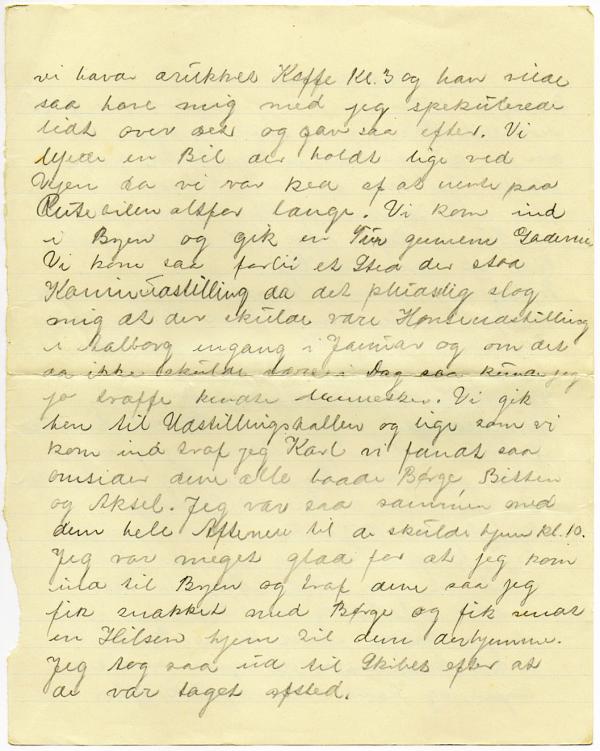 vi havde drukket Kaffe Kl. 3 og han vilde
saa have mig med jeg spekulerede
lidt over det og gav saa efter. Vi
en Bil der holdt lige ved
Vejen da vi var ked af at vente paa
Rutebilen altfor længe. Vi kom ind
i Byen og gik en Tur gennem Gaderne
Vi kom saa forbi et Sted der stod
Kaninudstilling da det pludslig slog
mig at der skulde være Hønseudstilling
i Aalborg engang i Januar og om det
da ikke skulde være i Dag saa kunde jeg
jo træffe kendte Mennesker. Vi gik
hen til Udstillingshallen og lige som vi
kom ind traf jeg Karl vi fandt saa
omsider dem alle baade Børge Bitten
og Aksel. Jeg var saa sammen med
dem hele Aftenen til de skulde hjem Kl. 10.
Jeg var meget glad for at jeg kom
ind til Byen og traf dem saa jeg
fik snakket med Børge og fik sendt
en Hilsen hjem til dem derhjemme.
Jeg tog saa ud til Skibet efter at
de var taget afsted.